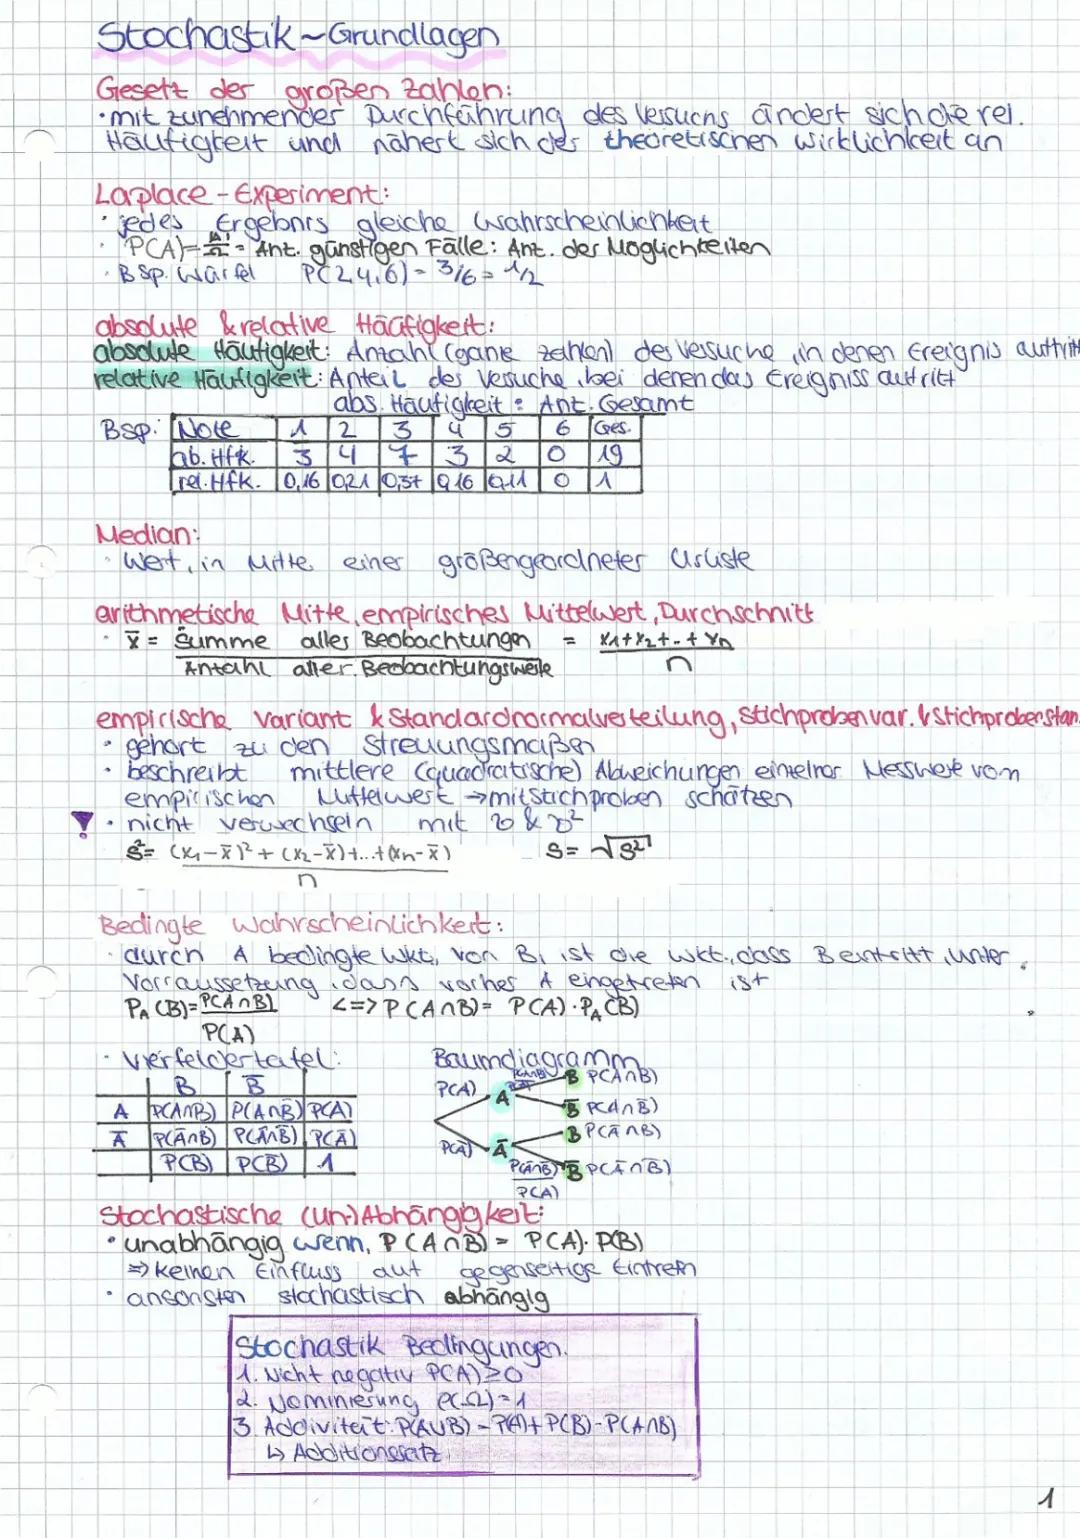 Stochastik ~ Grundlagen
Gesetz der großen Zahlen:
• mit zunehmender Durchführung des Versuchs ändert sich die rel.
Häufigkeit und nähert sich der theoretischen Wirklichkeit an
Laplace - Experiment:
• jedes Ergebnis gleiche Wahrscheinlichkeit
• P(A) = |A|/Ω = Ant. günstigen Fälle : Ant. der Möglichkeiten
• Bsp. Würfel P(2,4,6) = 3/6 = 1/2
absolute & relative Häufigkeit:
absolute Häufigkeit: Anzahl (ganze zahlen) des Versuche, in denen Ereignis auftritt
relative Häufigkeit: Anteil des Versuche, bei denen das Ereigniss auftritt
abs. Häufigkeit : Ant. Gesamt
Bsp: Note 1 2 3 4 5 6 Ges.
ab. Hfk. 3 4 7 3 2 0 19
rel. Hfk. 0,16 0,21 0,37 0,16 0,11 0 1
Median:
• Wert, in Mitte einer größengeordneter Urliste
arithmetische Mitte, empirisches Mittelwert, Durchschnitt
• x̄ = Summe alles Beobachtungen = x1+x2+..+xn
Anzahl aller Beobachtungswerte n
empirische Variant & Standardnormalverteilung, Stichprobenvar. & Stichprobenstan.
• gehört zu den Streuungsmaßen
• beschreibt mittlere (quadratische) Abweichungen einzelner Messwerte vom
empirischen Mittelwert → mit Stichproben schätzen
! • nicht verwechseln mit σ & σ²
s² = (x1-x̄)² + (x2-x̄)+...+(xn-x̄) s = √s²
n
Bedingte Wahrscheinlichkeit:
• durch A bedingte Wkt, von B, ist die Wkt., dass B eintritt, unter
Vorraussetzung, dass vorher A eingetreten ist
P_A(B) = P(A∩B) <=> P(A∩B) = P(A)·P_A(B)
P(A)
• Vierfeldertafel: Baumdiagramm
B B̄
A P(A∩B) P(A∩B̄) P(A)
Ā P(Ā∩B) P(Ā∩B̄) P(Ā)
P(B) P(B̄) 1
P(A) A P(A∩B) P(A) B P(A∩B)
B̄ P(A∩B̄)
B P(Ā∩B)
P(Ā) Ā P(Ā∩B̄) B̄ P(Ā∩B̄)
P(A)
Stochastische (Un-)Abhängigkeit:
• unabhängig wenn, P(A∩B) = P(A)·P(B)
⇒ keinen Einfluss auf gegenseitige Eintreten
• ansonsten stochastisch abhängig
Stochastik Bedingungen.
1. Nicht negativ P(A) ≥ 0
2. Nominierung P(Ω) = 1
3. Addivität: P(A∪B) = P(A) + P(B) - P(A∩B)
↳ Additionssatz
1